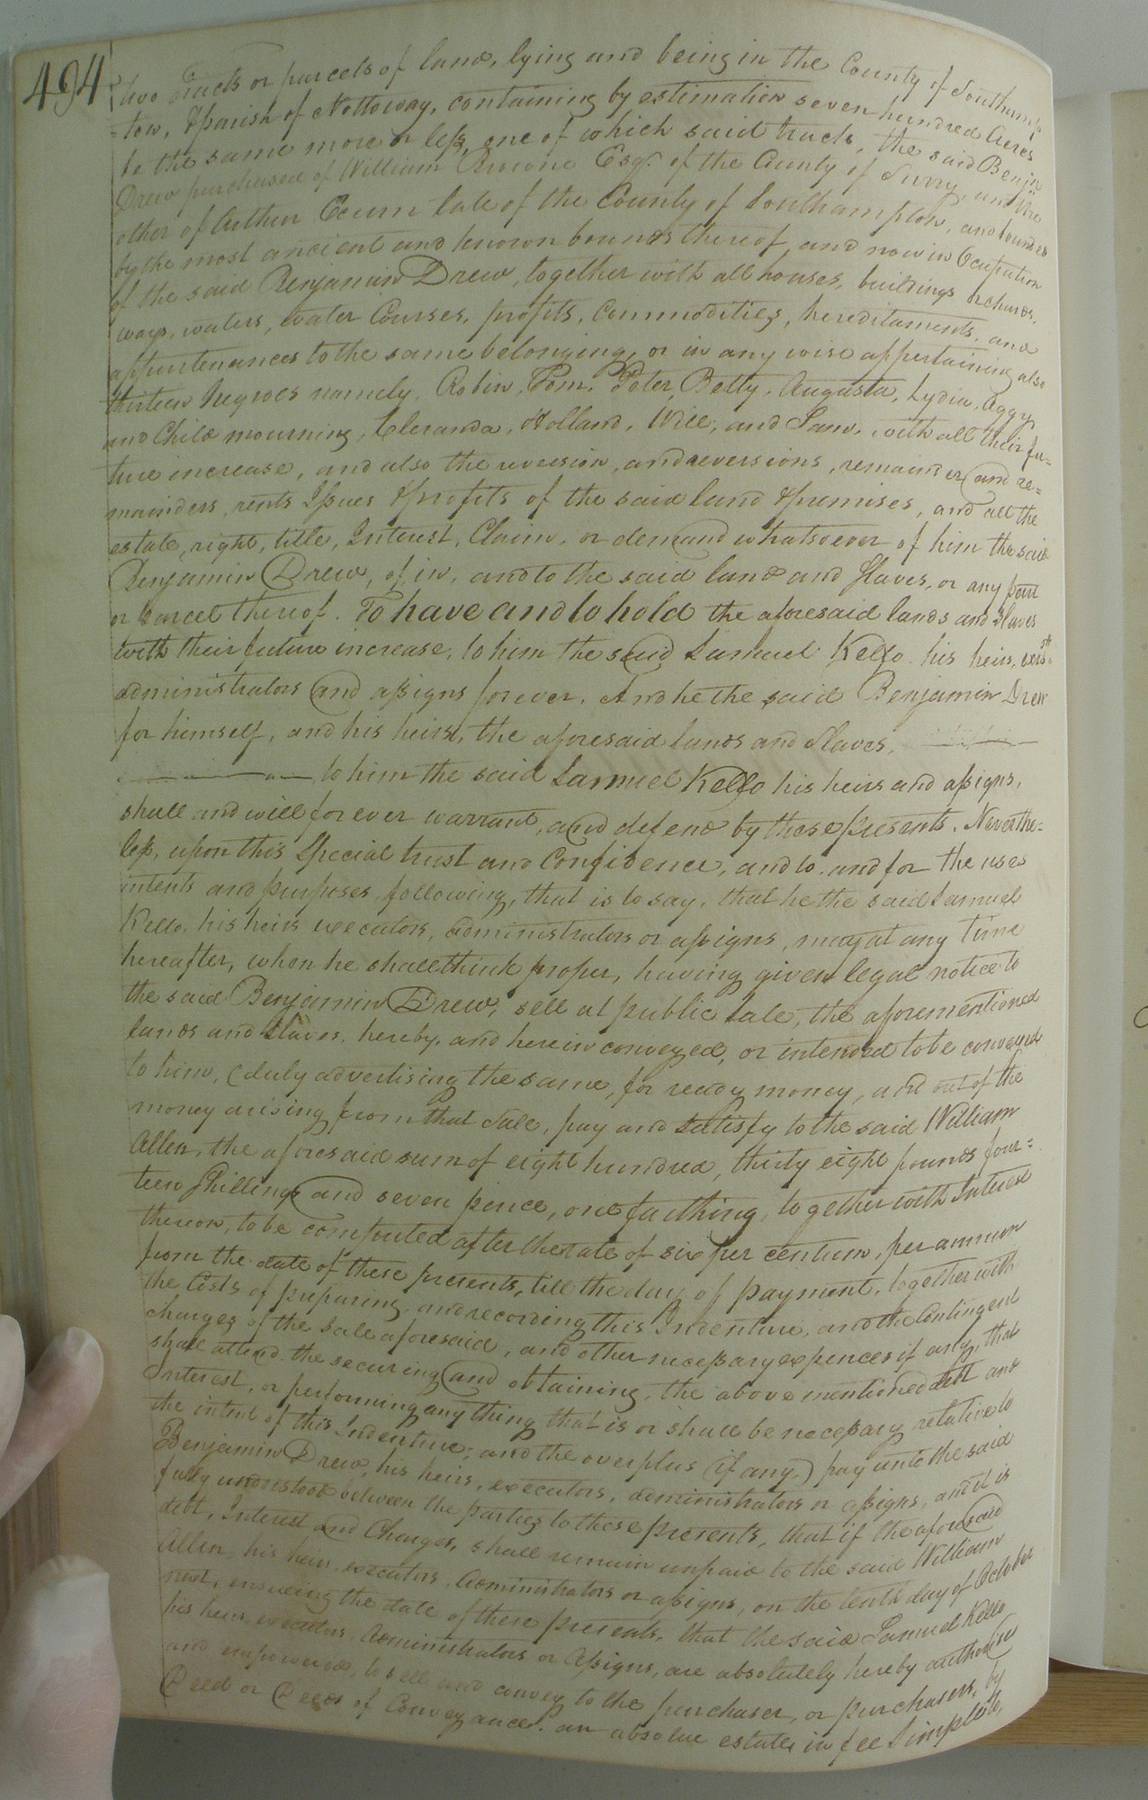 494
two Tracts or parcels of land, lying and being in the County of Southamp
=ton, & parish of Nottoway, containing by estimation seven hundred Acres
be the same more or less, one of which said tracts, the said Benjn
Drew purchased of William Browne Esqr. of the County of Surry, and the
other of Arthur Exum late of the County of Southampton, and bounded
by the most ancient and known bounds thereof, and now in Ocupation
of the said Benjamin Drew, together with all houses, buildings orchards,
ways, waters, water Courses, profits, Commodities, hereditaments, and
appurtenances to the same belonging, or in any wise appertaining also
thirteen Negroes namely, Robin, Tom, Peter, Betty, Augusta, Lydia, Aggy,
and Child mourning, Cleranda, Holland, Will, and Sam, with all their fu=
ture increase, and also the reversion, and reversions, remainder and re=
mainders, rents Issues & profits of the said land & premises, and all the
estate, right, title, Interest, Claim, or demand whatsoever of him the said
Benjamin Drew, of, in, and to the said land and Slaves, or any part
or parcel thereof. To have and to hold the aforesaid lands and Slaves
with their future increase, to him the said Samuel Kello his heirs,
administrators and assigns forever. And he the said Benjamin Drew
for himself, and his heirs, the aforesaid lands and Slaves,
to him the said Samuel Kello his heirs and assigns,
shall and will forever warrant, and defend by these presents. Neverthe=
less, upon this Special trust and Confidence, and to and for the uses
intents and purposes following, that is to say, that he the said Samuel
Kello, his heirs executors, administrators or assigns, may at any Time
hereafter, when he shall think proper, having given legal notice to
the said Benjamin Drew, sell at public Sale, the aforementioned
lands and Slaves, hereby, and herein conveyed, or intended to be conveyed
to him, (duly advertising the same, for ready money, and out of the
money arising from that Sale, pay and Satisfy to the said William
Allen, the aforesaid sum of eight hundred, thirty eight pounds four=
teen Shillings and seven pence, one farthing, together with Interest
thereon, to be computed after the rate of six per centum, per annum
from the date of these presents, till the day of payment, together with
the Costs of preparing and recording this Indenture, and the Contingent
charges of the Sale aforesaid, and other necessary expences if any, that
shall attend the securing and obtaining, the above mentioned debt and
Interest, or performing any thing that is or shall be necessary relative to
the intent of this Indenture; and the overplus (if any) pay unto the said
Benjamin Drew, his heirs, executors, administrators or assigns, and it is
fully understood between the parties to these presents, that if the aforesaid
debt, Interest and Charges, shall remain unpaid to the said William
Allen, his heirs, executors, Administrators or assigns, on the tenth day of October
next, ensueing the date of these presents, that the said Samuel Kello
his heirs, executors, Administrators or Assigns, are absolutely hereby authorised
and empowered, to sell and convey to the purchaser, or purchasers, by
Deed or Deeds of Conveyance, an absolue estate, in fee Simple to,